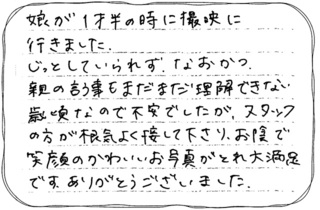 娘が1才半の時に撮映に
行きました.
じっとしていられず.なおかつ.
親の言う事をまだまだ理解できない
歳頃なので不安でしたが、スタッフ
の方が根気よく接して下さり、お陰で
笑顔のかわいいお写真がとれ大満足
です.ありがとうございました.